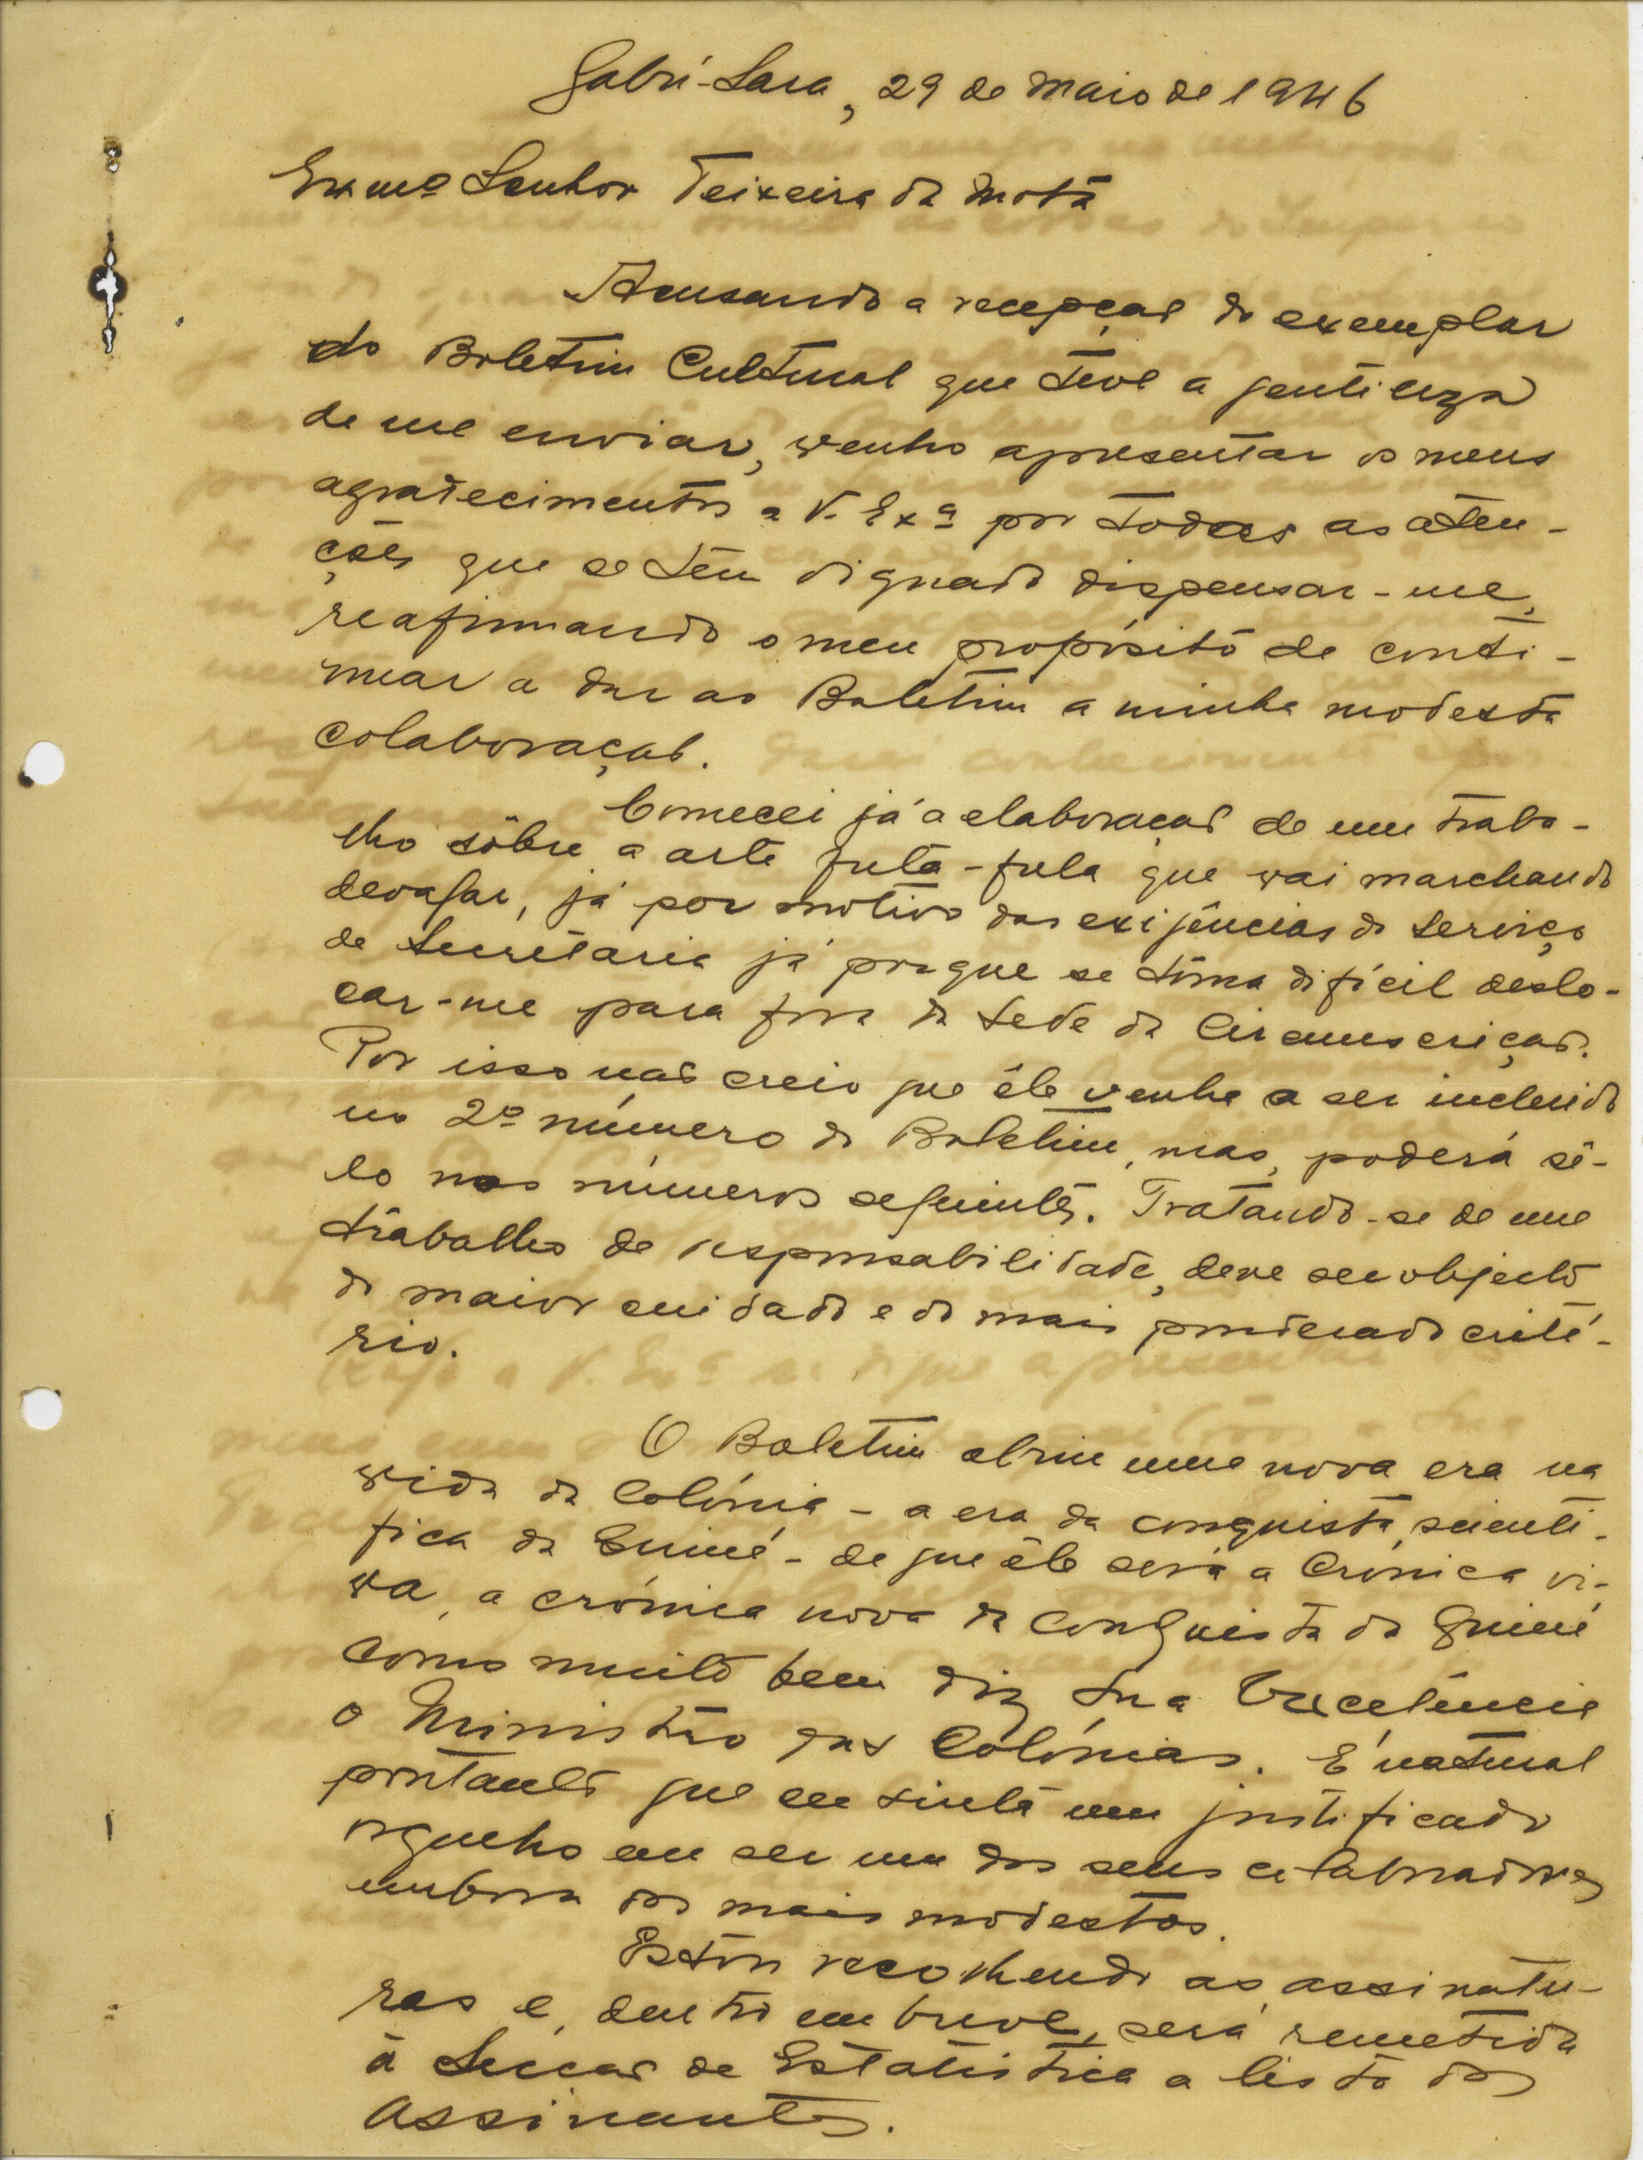 Gabú-Sara, 29 de Maio de 1946
Exmº Senhor Teixeira da Mota
Acusando a recepção do exemplar
do Boletim Cultural que teve a gentileza
de me enviar, venho apresentar os meus
agradecimentos a V. Exª por todas as aten-
ções que se tem dignado dispensar-me,
reafirmando o meu propósito de conti-
nuar a dar ao Boletim a minha modesta
colaboração.
Comecei já a elaboração de um traba-
lho sôbre a arte futa-fula que vai marchando
devagar, já por motivo das exigências do serviço
de Secretaria já porque se torna difícil deslo-
car-me para fora da Sede da Circunscrição.
Por isso não creio que êle venha a ser incluido
no 2º número do Boletim, mas, poderá sê-
lo nos números seguintes. Tratando-se de um
trabalho de responsabilidade, deve ser objecto
do maior cuidado e do mais ponderado crité-
rio.
O Boletim abriu uma nova era na
vida da Colónia - a era da conquista scienti-
fica da Guiné - de que êle será a Crónica vi-
va, a crónica nova da Conquista da Guiné
como muito bem diz Sua Excelência
o Ministro das Colónias. É natural
portanto que eu sinta um justificado
orgulho em ser um dos seus colaboradores
embora dos mais modestos.
Estou recolhendo as assinatu-
ras e, dentro em breve, será remetida
à Secção de Estatística a lista dos
assinantes.